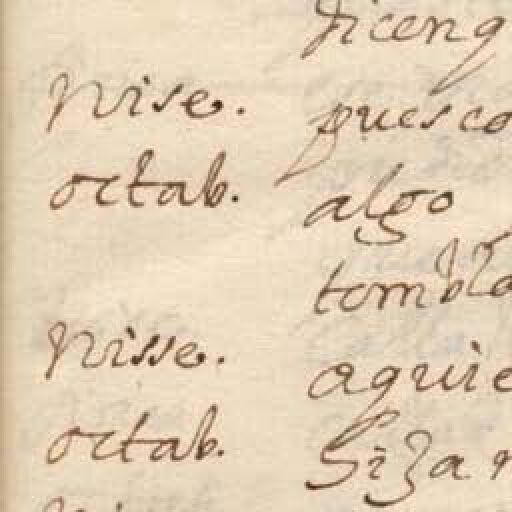 diceng
Nise. puesco
octab. algo
tombla
Nisse. aquie
octab.